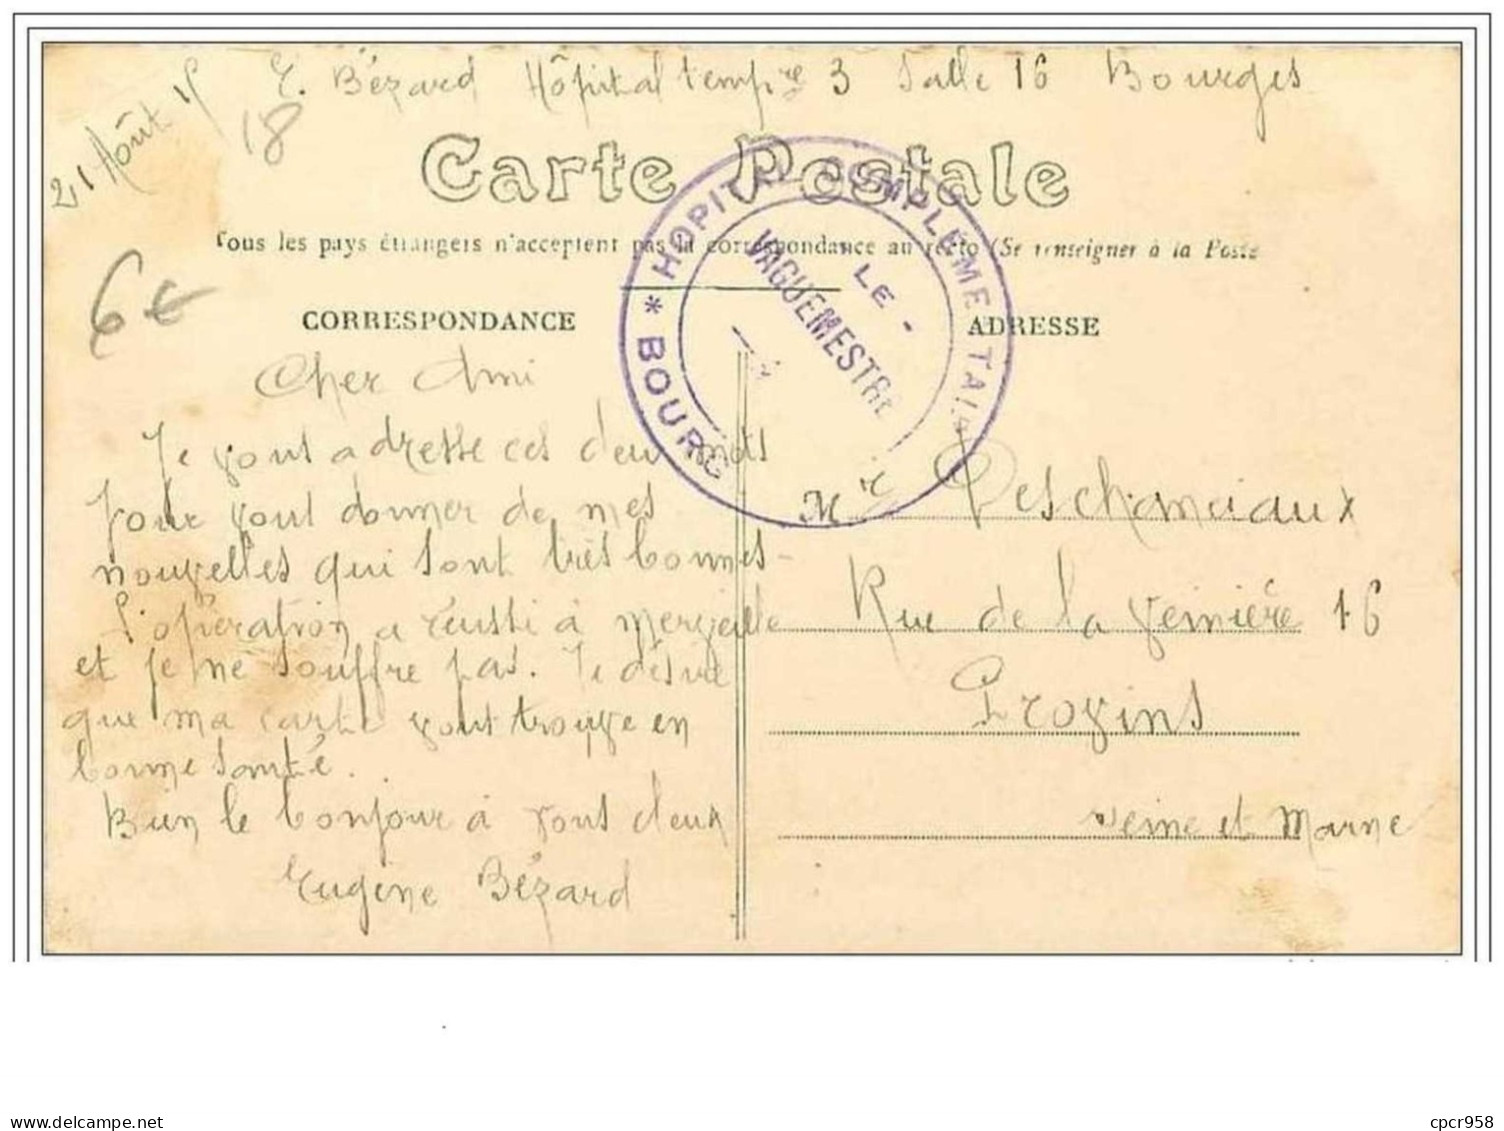 E. Bézard Hôpital temp^re 3 Salle 16 Bourges
21 Août 15
18
Carte Postale
Tous les pays étrangers n'acceptent pas la correspondance au recto (Se renseigner à la Poste
6€
HOPITAL COMPLEMENTAIRE
* BOURG
LE -
VAGUEMESTRE
CORRESPONDANCE
Cher Ami
Je vous adresse ces deux mots
pour vous donner de mes
nouvelles qui sont très bonnes -
L'opération a réussi à merveille
et je ne souffre pas. Je désire
que ma carte vous trouve en
bonne santé.
Bien le bonjour à vous deux
Eugène Bézard
ADRESSE
Mr
Rue de la 16
Provins
Seine et Marne
cpcr958